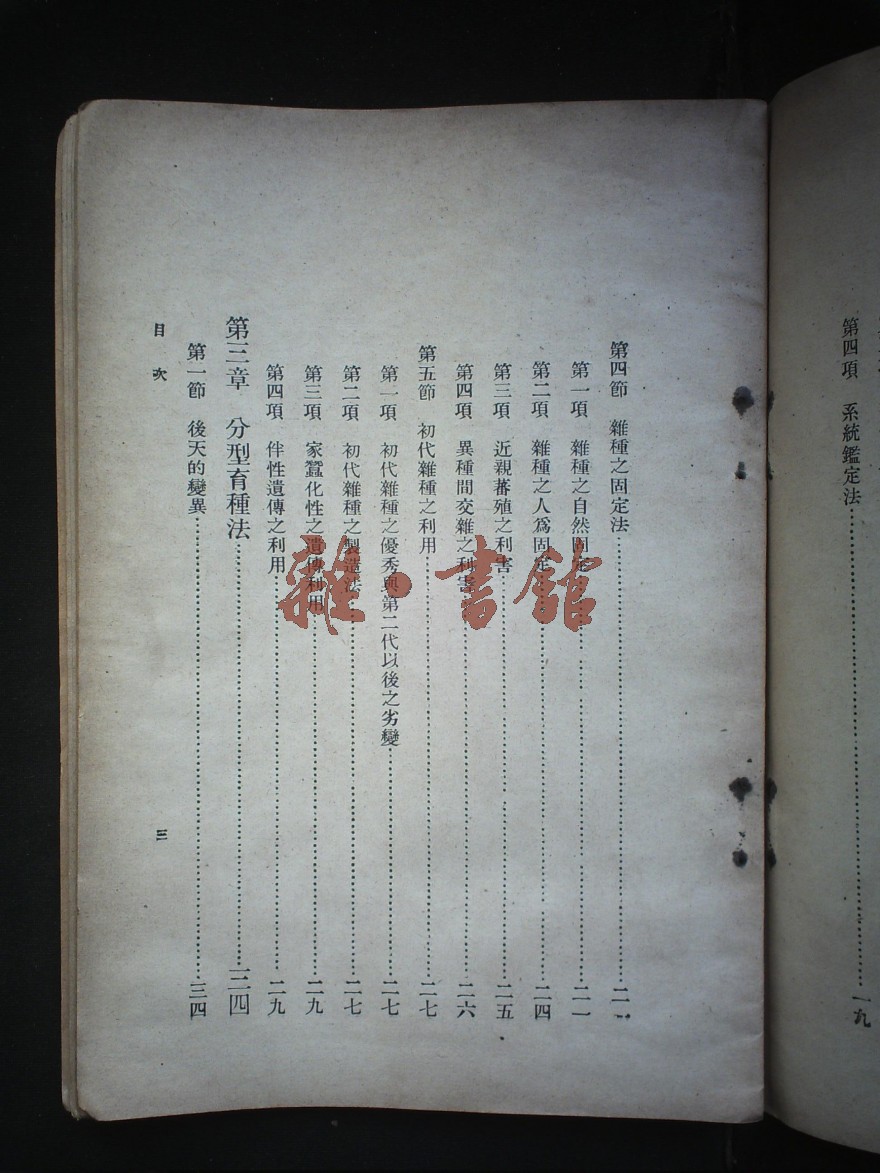 第四項　系統鑑定法……一九
第四節　雜種之固定法……二
第一項　雜種之自然固定……二一
第二項　雜種之人爲固定……二四
第三項　近親蕃殖之利害……二五
第四項　異種間交雜之利害……二六
第五節　初代雜種之利用……二七
第一項　初代雜種之優秀與第二代以後之劣變……二七
第二項　初代雜種之製造法……二七
第三項　家蠶化性之遺傳利用……二九
第四項　伴性遺傳之利用……二九
第三章　分型育種法……三四
第一節　後天的變異……三四
目次
三
雜·書館